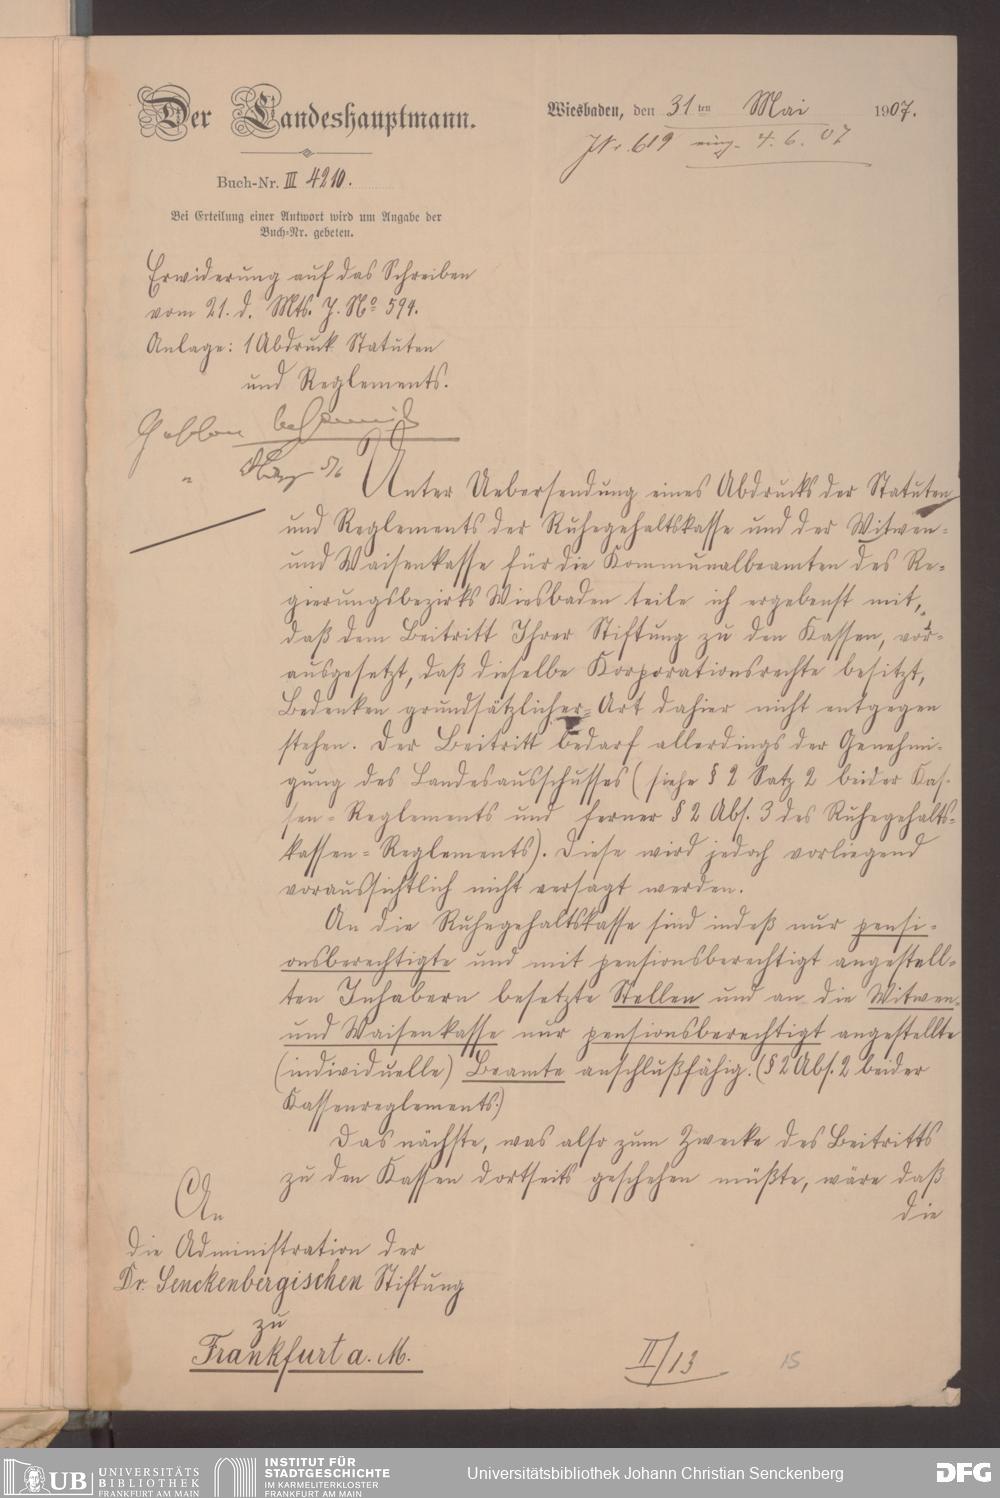 Der Landeshauptmann.
Wiesbaden, den 31ten Mai 1907.
J.Nr. 619 eing. 4. 6. 07
Buch-Nr. III 4210.
Bei Erteilung einer Antwort wird um Angabe der
Buch-Nr. gebeten.
Erwiderung auf das Schreiben
vom 21. d. Mts. J. No 594.
Anlage: 1 Abdruck Statuten
und Reglements.
Unter Uebersendung eines Abdrucks der Statuten
und Reglements der Ruhegehaltskasse und der Witwen-
und Waisenkasse für die Kommunalbeamten des Re-
gierungsbezirks Wiesbaden teile ich ergebenst mit,
daß dem Beitritt Ihrer Stiftung zu den Kassen, vor-
ausgesetzt, daß dieselbe Korporationsrechte besitzt,
Bedenken grundsätzlicher Art dahier nicht entgegen
stehen. Der Beitritt bedarf allerdings der Genehmi-
gung des Landesausschusses (siehe § 2 Satz 2 beider Kas-
sen-Reglements und ferner § 2 Abs. 3 des Ruhegehalts-
kassen-Reglements). Diese wird jedoch vorliegend
voraussichtlich nicht versagt werden.
An die Ruhegehaltskasse sind indeß nur pensi-
onsberechtigte und mit pensionsberechtigt angestell-
ten Inhabern besetzte Stellen und an die Witwen-
und Waisenkasse nur pensionsberechtigt angestellte
(individuelle) Beamte anschlußfähig. (§ 2 Abs. 2 beider
Kassenreglements.)
Das nächste, was also zum Zwecke des Beitritts
zu den Kassen dortseits geschehen müßte, wäre daß
die
An
die Administration der
Dr. Senckenbergischen Stiftung
zu
Frankfurt a. M.
II/13
15
UB UNIVERSITÄTS
BIBLIOTHEK
FRANKFURT AM MAIN
INSTITUT FÜR
STADTGESCHICHTE
IM KARMELITERKLOSTER
FRANKFURT AM MAIN
Universitätsbibliothek Johann Christian Senckenberg
DFG